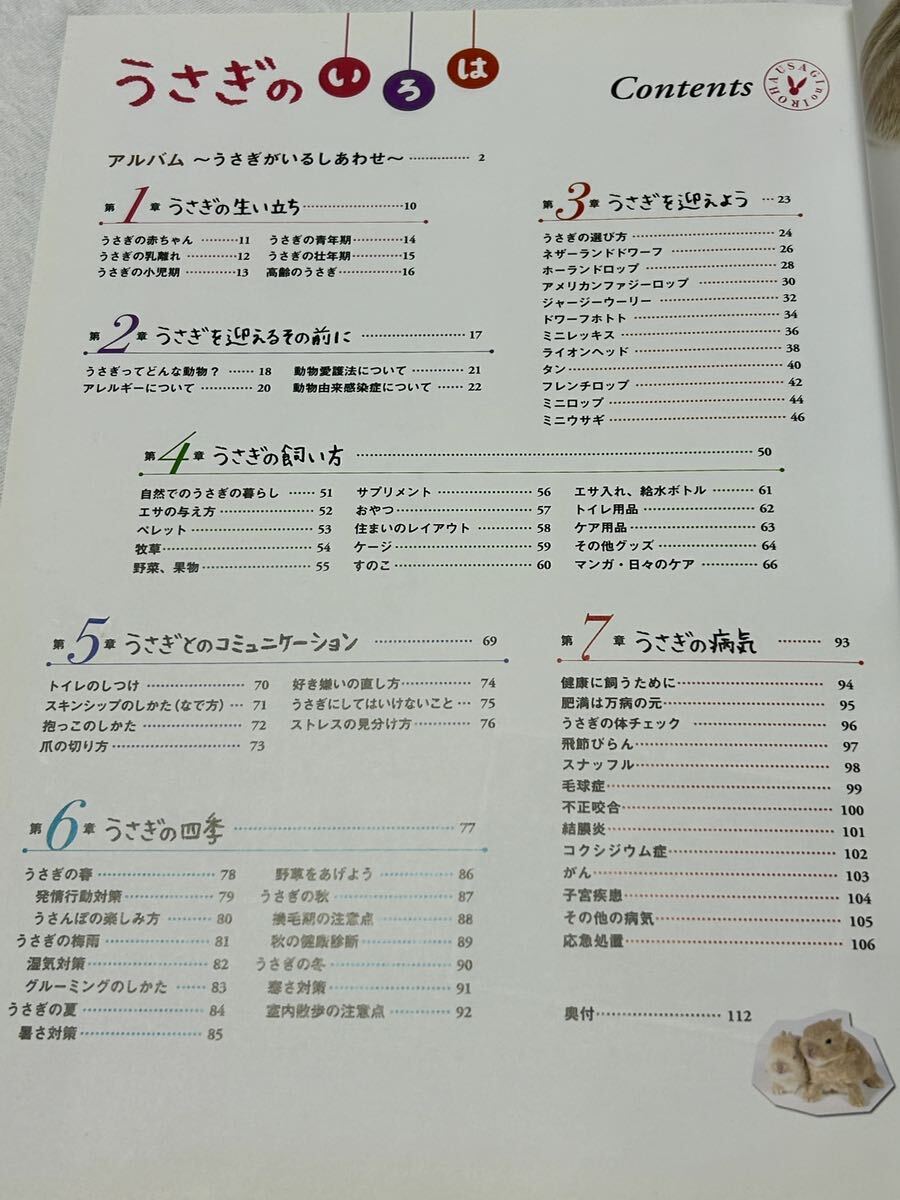 うさぎのいろは
Contents
USAGI no IROHA
アルバム ～うさぎがいるしあわせ～ ……………… 2
第1章 うさぎの生い立ち ……………… 10
うさぎの赤ちゃん ……… 11
うさぎの乳離れ ……… 12
うさぎの小児期 ……… 13
うさぎの青年期 ……… 14
うさぎの壮年期 ……… 15
高齢のうさぎ ……… 16
第2章 うさぎを迎えるその前に ……………… 17
うさぎってどんな動物？ …… 18
アレルギーについて ……… 20
動物愛護法について ……… 21
動物由来感染症について …… 22
第3章 うさぎを迎えよう … 23
うさぎの選び方 ……………… 24
ネザーランドドワーフ ……………… 26
ホーランドロップ ……………… 28
アメリカンファジーロップ ……………… 30
ジャージーウーリー ……………… 32
ドワーフホトト ……………… 34
ミニレッキス ……………… 36
ライオンヘッド ……………… 38
タン ……………… 40
フレンチロップ ……………… 42
ミニロップ ……………… 44
ミニウサギ ……………… 46
第4章 うさぎの飼い方 ……………… 50
自然でのうさぎの暮らし …… 51
エサの与え方 ……………… 52
ペレット ……………… 53
牧草 ……………… 54
野菜、果物 ……………… 55
サプリメント ……………… 56
おやつ ……………… 57
住まいのレイアウト ……… 58
ケージ ……………… 59
すのこ ……………… 60
エサ入れ、給水ボトル ……… 61
トイレ用品 ……………… 62
ケア用品 ……………… 63
その他グッズ ……………… 64
マンガ・日々のケア ……… 66
第5章 うさぎとのコミュニケーション ……………… 69
トイレのしつけ ……………… 70
スキンシップのしかた（なで方） … 71
抱っこのしかた ……………… 72
爪の切り方 ……………… 73
好き嫌いの直し方 ……………… 74
うさぎにしてはいけないこと … 75
ストレスの見分け方 ……… 76
第6章 うさぎの四季 ……………… 77
うさぎの春 ……………… 78
発情行動対策 ……………… 79
うさんぽの楽しみ方 ……… 80
うさぎの梅雨 ……………… 81
湿気対策 ……………… 82
グルーミングのしかた …… 83
うさぎの夏 ……………… 84
暑さ対策 ……………… 85
野草をあげよう ……………… 86
うさぎの秋 ……………… 87
換毛期の注意点 ……………… 88
秋の健康診断 ……………… 89
うさぎの冬 ……………… 90
寒さ対策 ……………… 91
室内散歩の注意点 ……… 92
第7章 うさぎの病気 ……… 93
健康に飼うために ……………… 94
肥満は万病の元 ……………… 95
うさぎの体チェック ……………… 96
飛節びらん ……………… 97
スナッフル ……………… 98
毛球症 ……………… 99
不正咬合 ……………… 100
結膜炎 ……………… 101
コクシジウム症 ……………… 102
がん ……………… 103
子宮疾患 ……………… 104
その他の病気 ……………… 105
応急処置 ……………… 106
奥付 ……………… 112